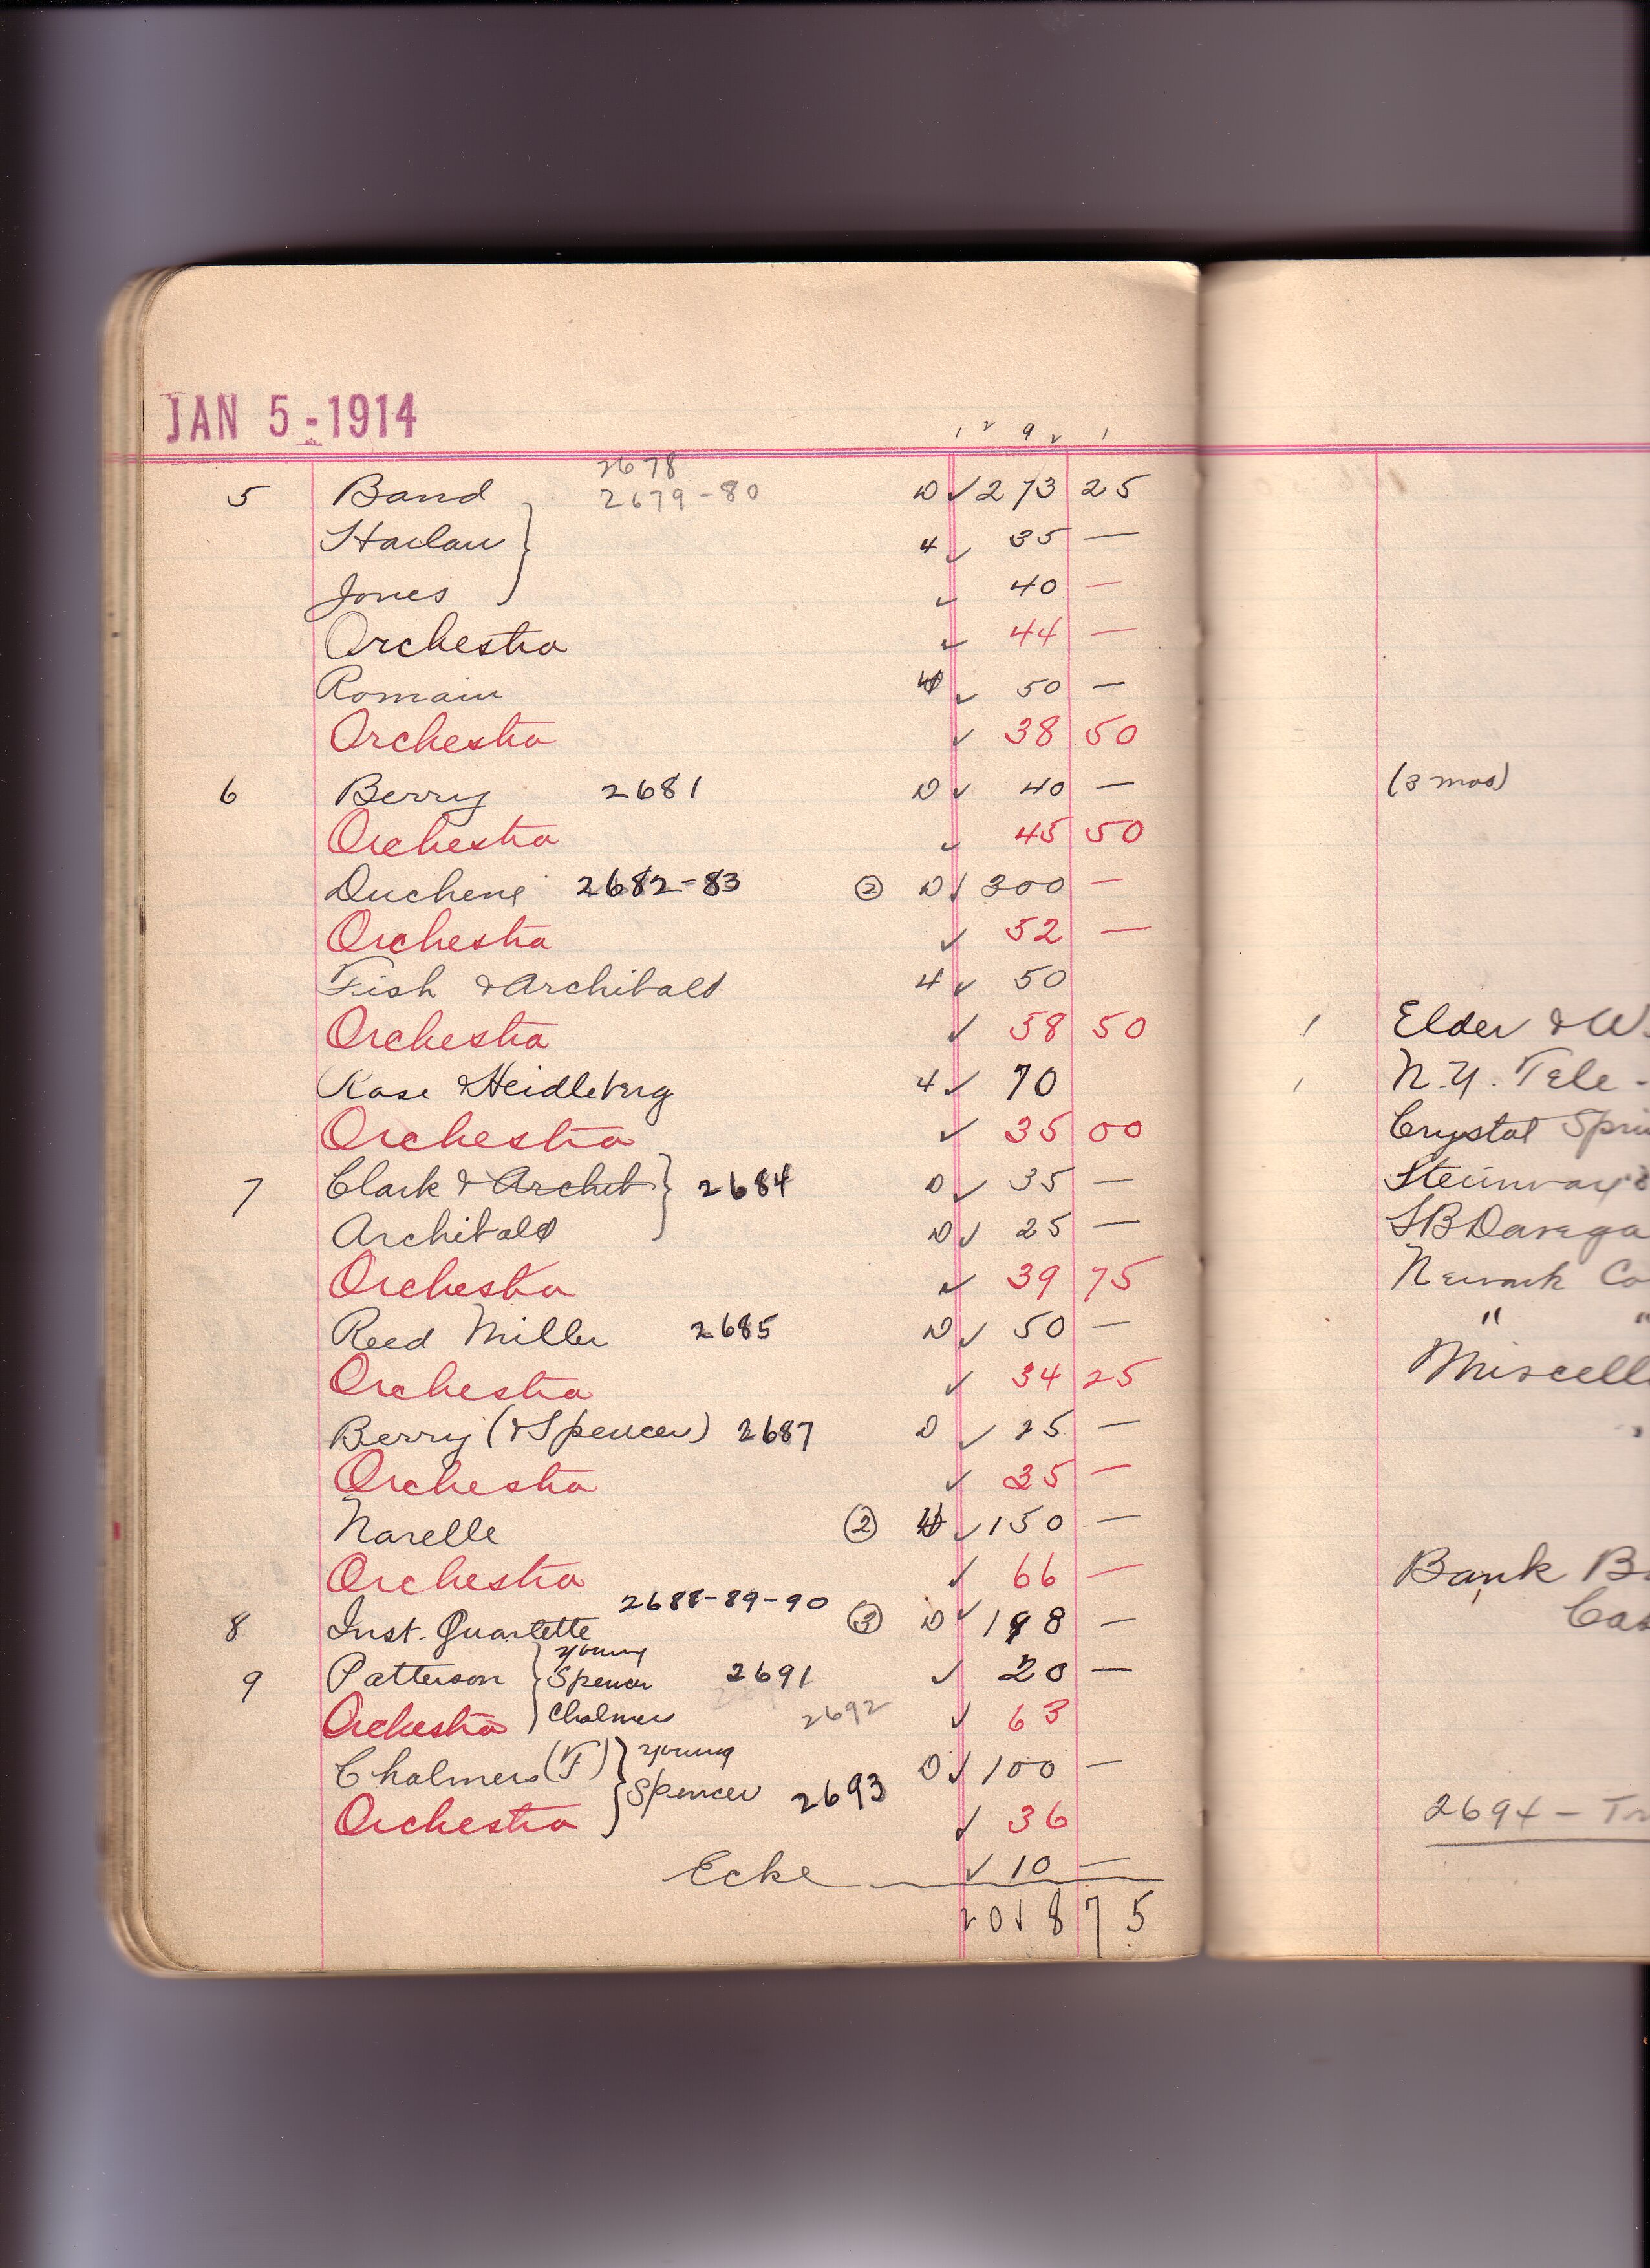 JAN 5 - 1914
1 2 9 2 1
2678
5 Band 2679-80 D ✓ 273 25
Harlan } 4 ✓ 35 —
Jones ✓ 40 —
Orchestra ✓ 44 —
Romain ✓ 50 —
Orchestra ✓ 38 50
6 Berry 2681 D ✓ 40 —
Orchestra ✓ 45 50
Duchene 2682-83 ② D ✓ 300 —
Orchestra ✓ 52 —
Fish & Archibald 4 ✓ 50
Orchestra ✓ 58 50
Rose & Heidleberg 4 ✓ 70
Orchestra ✓ 35 00
7 Clark & Archib } 2684 D ✓ 35 —
Archibald D ✓ 25 —
Orchestra ✓ 39 75
Reed Miller 2685 D ✓ 50 —
Orchestra ✓ 34 25
Berry (& Spencer) 2687 D ✓ 25 —
Orchestra ✓ 35 —
Narelle ② ✓ 150 —
Orchestra ✓ 66 —
2688-89-90
8 Inst. Quartette ③ D ✓ 198 —
Young
9 Patterson } Spencer 2691 ✓ 20 —
Orchestra Chalmers 2692 ✓ 63
Chalmers (T) } Young D ✓ 100 —
Spencer 2693
Orchestra ✓ 36
Ecke ✓ 10 —
2018 75
(3 mos)
1 Elder & W
1 N.Y. Tele-
Crystal Spri
Steinway &
SB Davega
Newark Co
" "
Miscell
Bank B
Cas
2694 - Tr